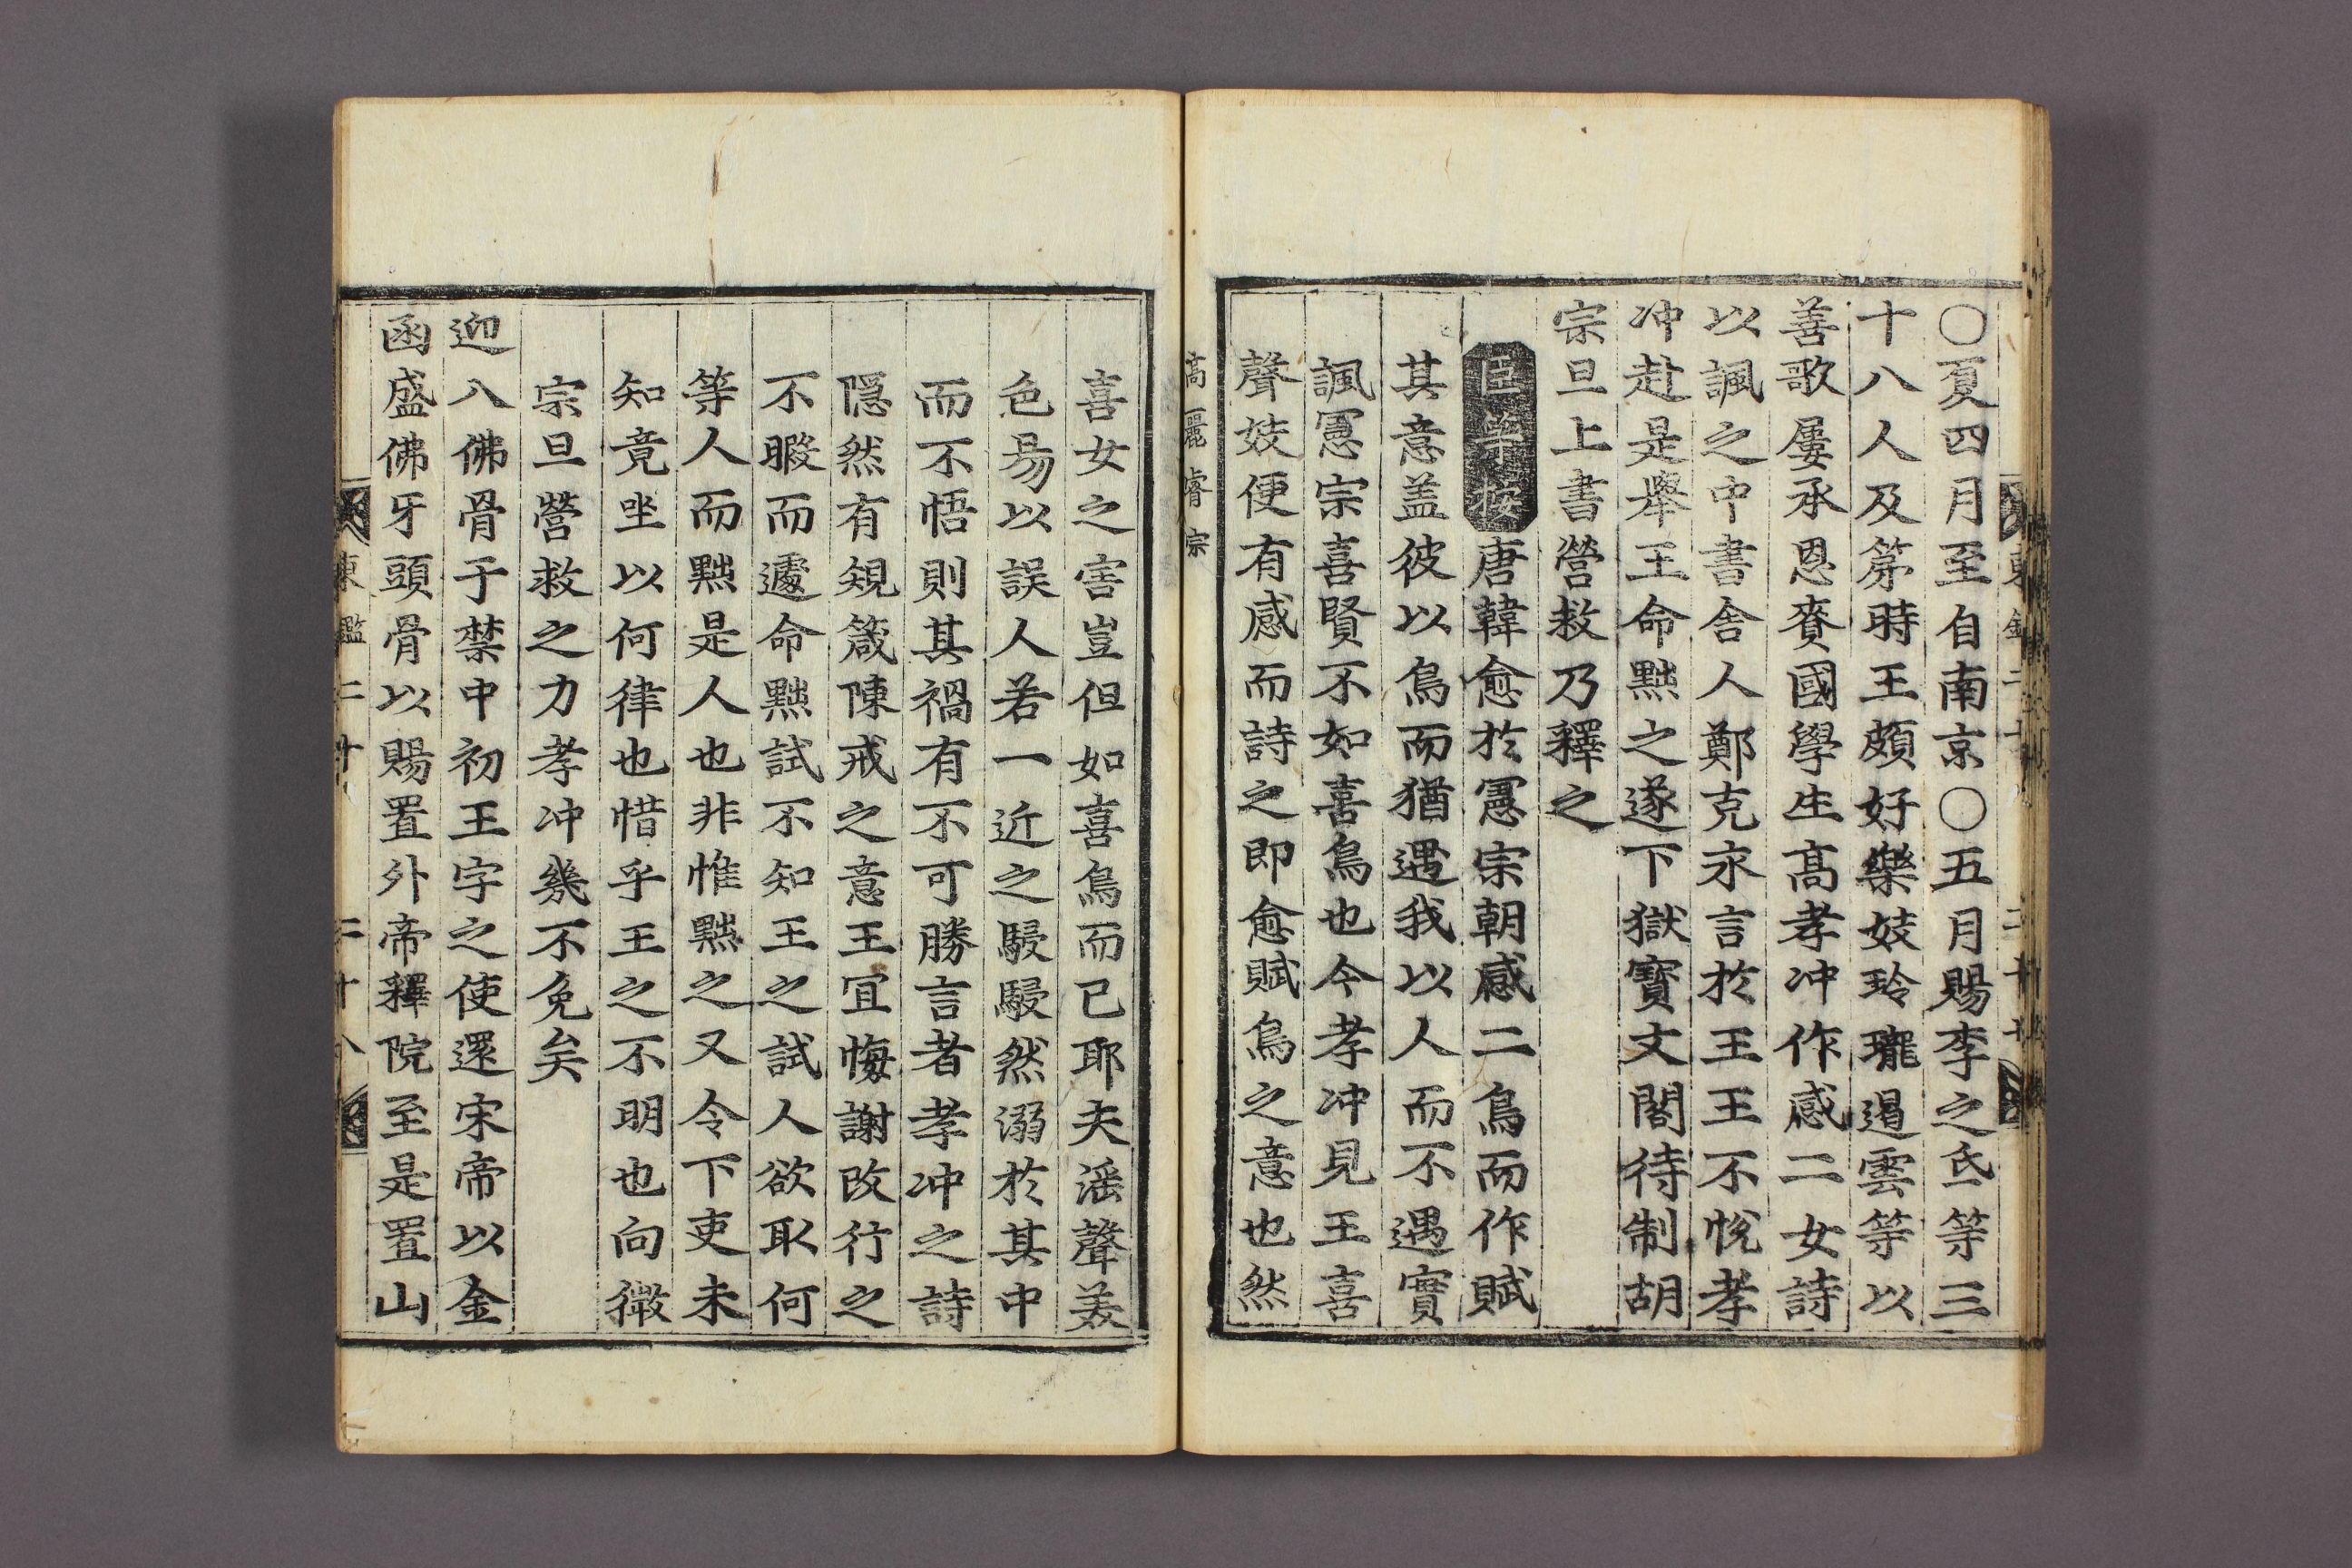 〇夏四月至自南京〇五月賜李之氐等三
十八人及第時王頗好樂妓玲瓏遏雲等以
善歌屢承恩賚國學生高孝冲作感二女詩
以諷之中書舍人鄭克永言於王王不悅孝
冲赴是舉王命黜之遂下獄寶文閣待制胡
宗旦上書營救乃釋之
臣等按唐韓愈於憲宗朝感二鳥而作賦
其意盖彼以鳥而猶遇我以人而不遇實
諷憲宗喜賢不如喜鳥也今孝冲見王喜
聲妓便有感而詩之即愈賦鳥之意也然
高麗睿宗
喜女之害豈但如喜鳥而已耶夫滛聲美
色易以誤人若一近之駸駸然溺於其中
而不悟則其禍有不可勝言者孝冲之詩
隱然有䂓箴陳戒之意王宜悔謝改行之
不暇而遽命黜試不知王之試人欲取何
等人而黜是人也非惟黜之又令下吏未
知竟坐以何律也惜乎王之不明也向微
宗旦營救之力孝冲幾不免矣
迎入佛骨于禁中初王字之使還宋帝以金
函盛佛牙頭骨以賜置外帝釋院至是置山
東鑑二十 二十八